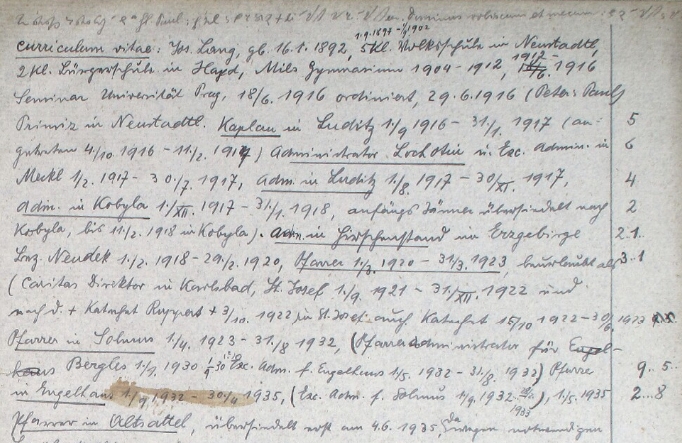 Dominus vobiscum et mecum
1.9.1897 - 1902
curriculum vitae: Jos. Lang, gb. 16.1.1892, 5 Kl. Volksschule in Neustadtl,
2 Kl. Bürgerschule in Hayd, Mies Gymnasium 1904-1912, 1912- 1916
Seminar Universität Prag, 18/6. 1916 ordiniert, 29.6.1916 (Peter Paul)
Primiz in Neustadtl. Kaplan in Luditz 1/9 1916 - 31/1. 1917 (an- 5
getreten 4/10 1916 - 11/2. 1917) Administrator Lochotin u. Exc. Admin. in 6
Meckl 1/2. 1917 - 30./7. 1917, Adm. in Luditz 1./8. 1917 - 30/XI. 1917, 4
Adm. in Kobyla 1./XII. 1917 - 31./1. 1918, anfangs Jänner übersiedelt nach 2
Kobyla, bis 11/2. 1918 in Kobyla). Adm. in Hirschenstand im Erzgebirge 2..1..
Bez. Neudek 1./2. 1918 - 29/2. 1920, Pfarrer 1/3. 1920 - 31/3. 1923, beurlaubt als 3..1
(Caritas Direktor in Karlsbad, St. Josef 1./9. 1921 - 31/XII. 1922 und
nach d. + Katechet Ruppert + 3/10. 1922 in St. Josef auch Katechet 15/10 1922 - 30/6. 1923
Pfarrer in Solmus 1/4. 1923 - 31./8 1932, (Pfarradministrator für
Bergles 1/9 1930 Exc. Adm. f. Engelhaus 1/5. 1932 - 31/8. 1932) Pfarrer 9..5..
in Engelhaus 1/9. 1932 - 30/4 1935, (Exc. Adm. f. Solmus 1/9. 1932 - 1933), 1/5. 1935 2...8
Pfarrer in Altsattel, übersiedelt erst am 4.6.1935, da wegen notwendigen